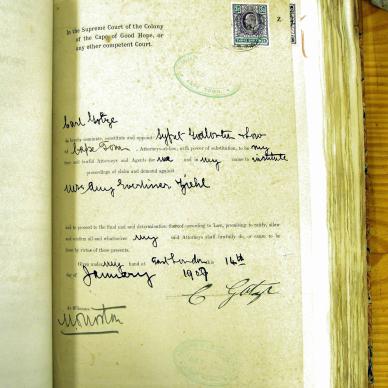 In the Supreme Court of the Colony
of the Cape of Good Hope, or
any other competent Court.
Carl Gotze
do hereby nominate, constitute and appoint Syfret Godlonton & Low
of Cape Town, Attorneys-at-law, with power of substitution, to be my
true and lawful Attorneys and Agents for me and in my name to institute
proceedings of claim and demand against
Mrs Amy
and to proceed to the final end and determination thereof according to Law, promising to ratify, allow
and confirm all and whatsoever my said Attorneys shall lawfully do, or cause to be
done by virtue of these presents.
Given under my hand at East London this 14th
day of January 1907
As Witnesses:
C Gotze